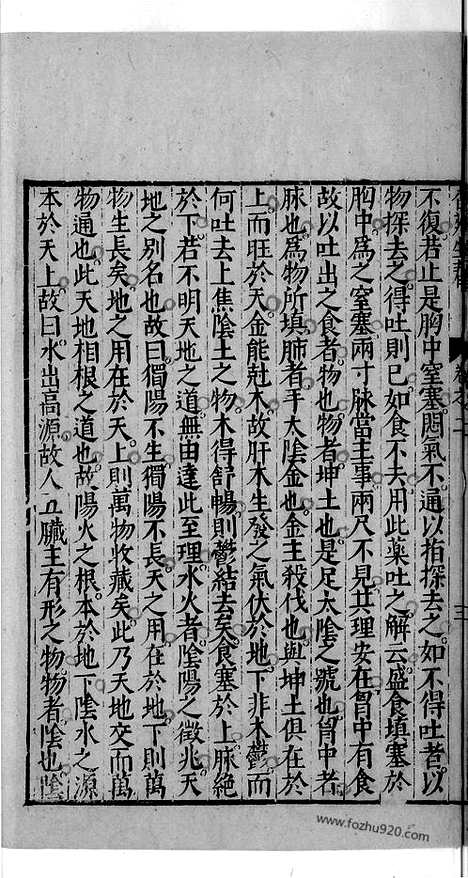 不復若止是胸中窒塞悶氣不通以指探去之如不得吐者以
物探去之得吐則已如食不去用此藥吐之解云盛食填塞於
胸中爲之窒塞兩寸脉當主事兩尺不見其理安在胷中有食
故以吐出之食者物也物者坤土也是足太陰之號也胷中者
肺也爲物所填肺者手太陰金也金主殺伐也與坤土俱在於
上而旺於天金能尅木故肝木生發之氣伏於地下非木鬱而
何吐去上焦陰土之物木得舒暢則鬱結去矣食塞於上脉絕
於下若不明天地之道無由達此至理水火者陰陽之徵兆天
地之别名也故曰獨陽不生獨陽不長天之用在於地下則萬
物生長矣地之用在於天上則萬物收藏矣此乃天地交而萬
物通也此天地相根之道也故陽火之根本於地下陰水之源
本於天上故曰水出高源故人五臟主有形之物物者陰也陰
www.fozhu920.com